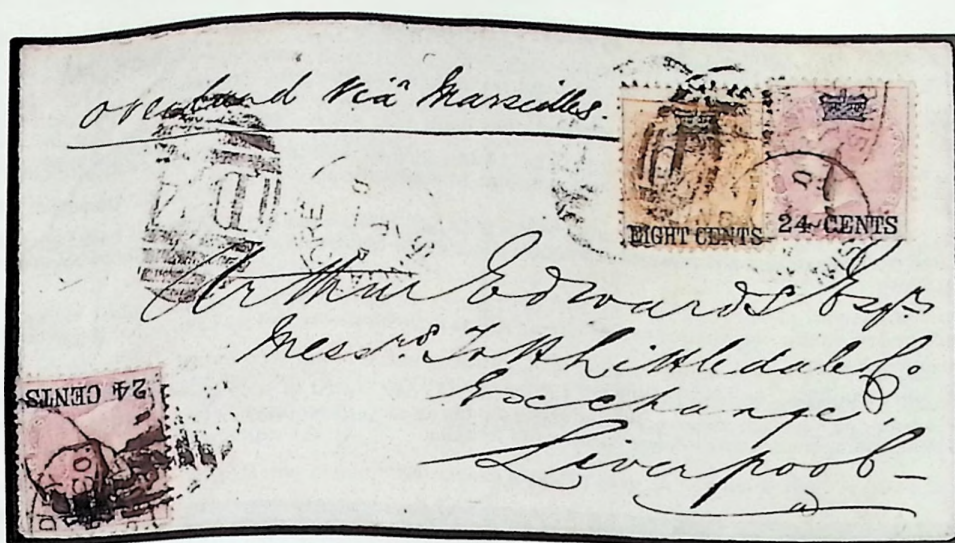 overland viâ Marseilles.
EIGHT CENTS
24 CENTS
Arthur Edwards Esqre
Messrs. T & H Littledale & Co.
Exchange,
Liverpool
24 CENTS